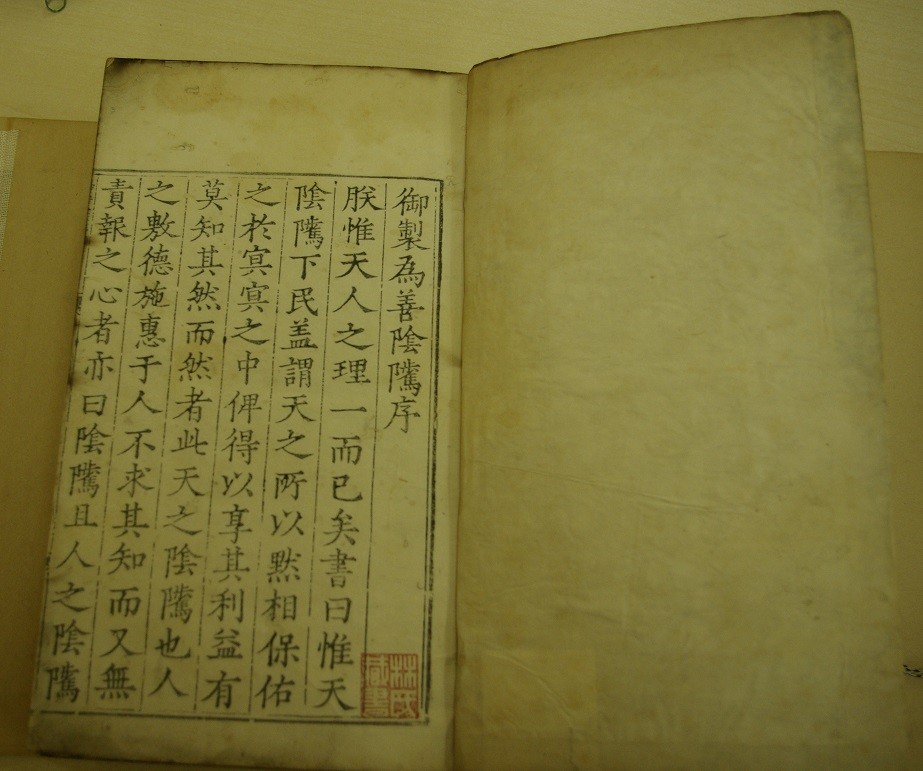 御製為善陰隲序
朕惟天人之理一而已矣書曰惟天
陰隲下民盖謂天之所以黙相保佑
之於冥冥之中俾得以享其利益有
莫知其然而然者此天之陰隲也人
之敷德施惠于人不求其知而又無
責報之心者亦曰陰隲且人之陰隲
林氏
藏書